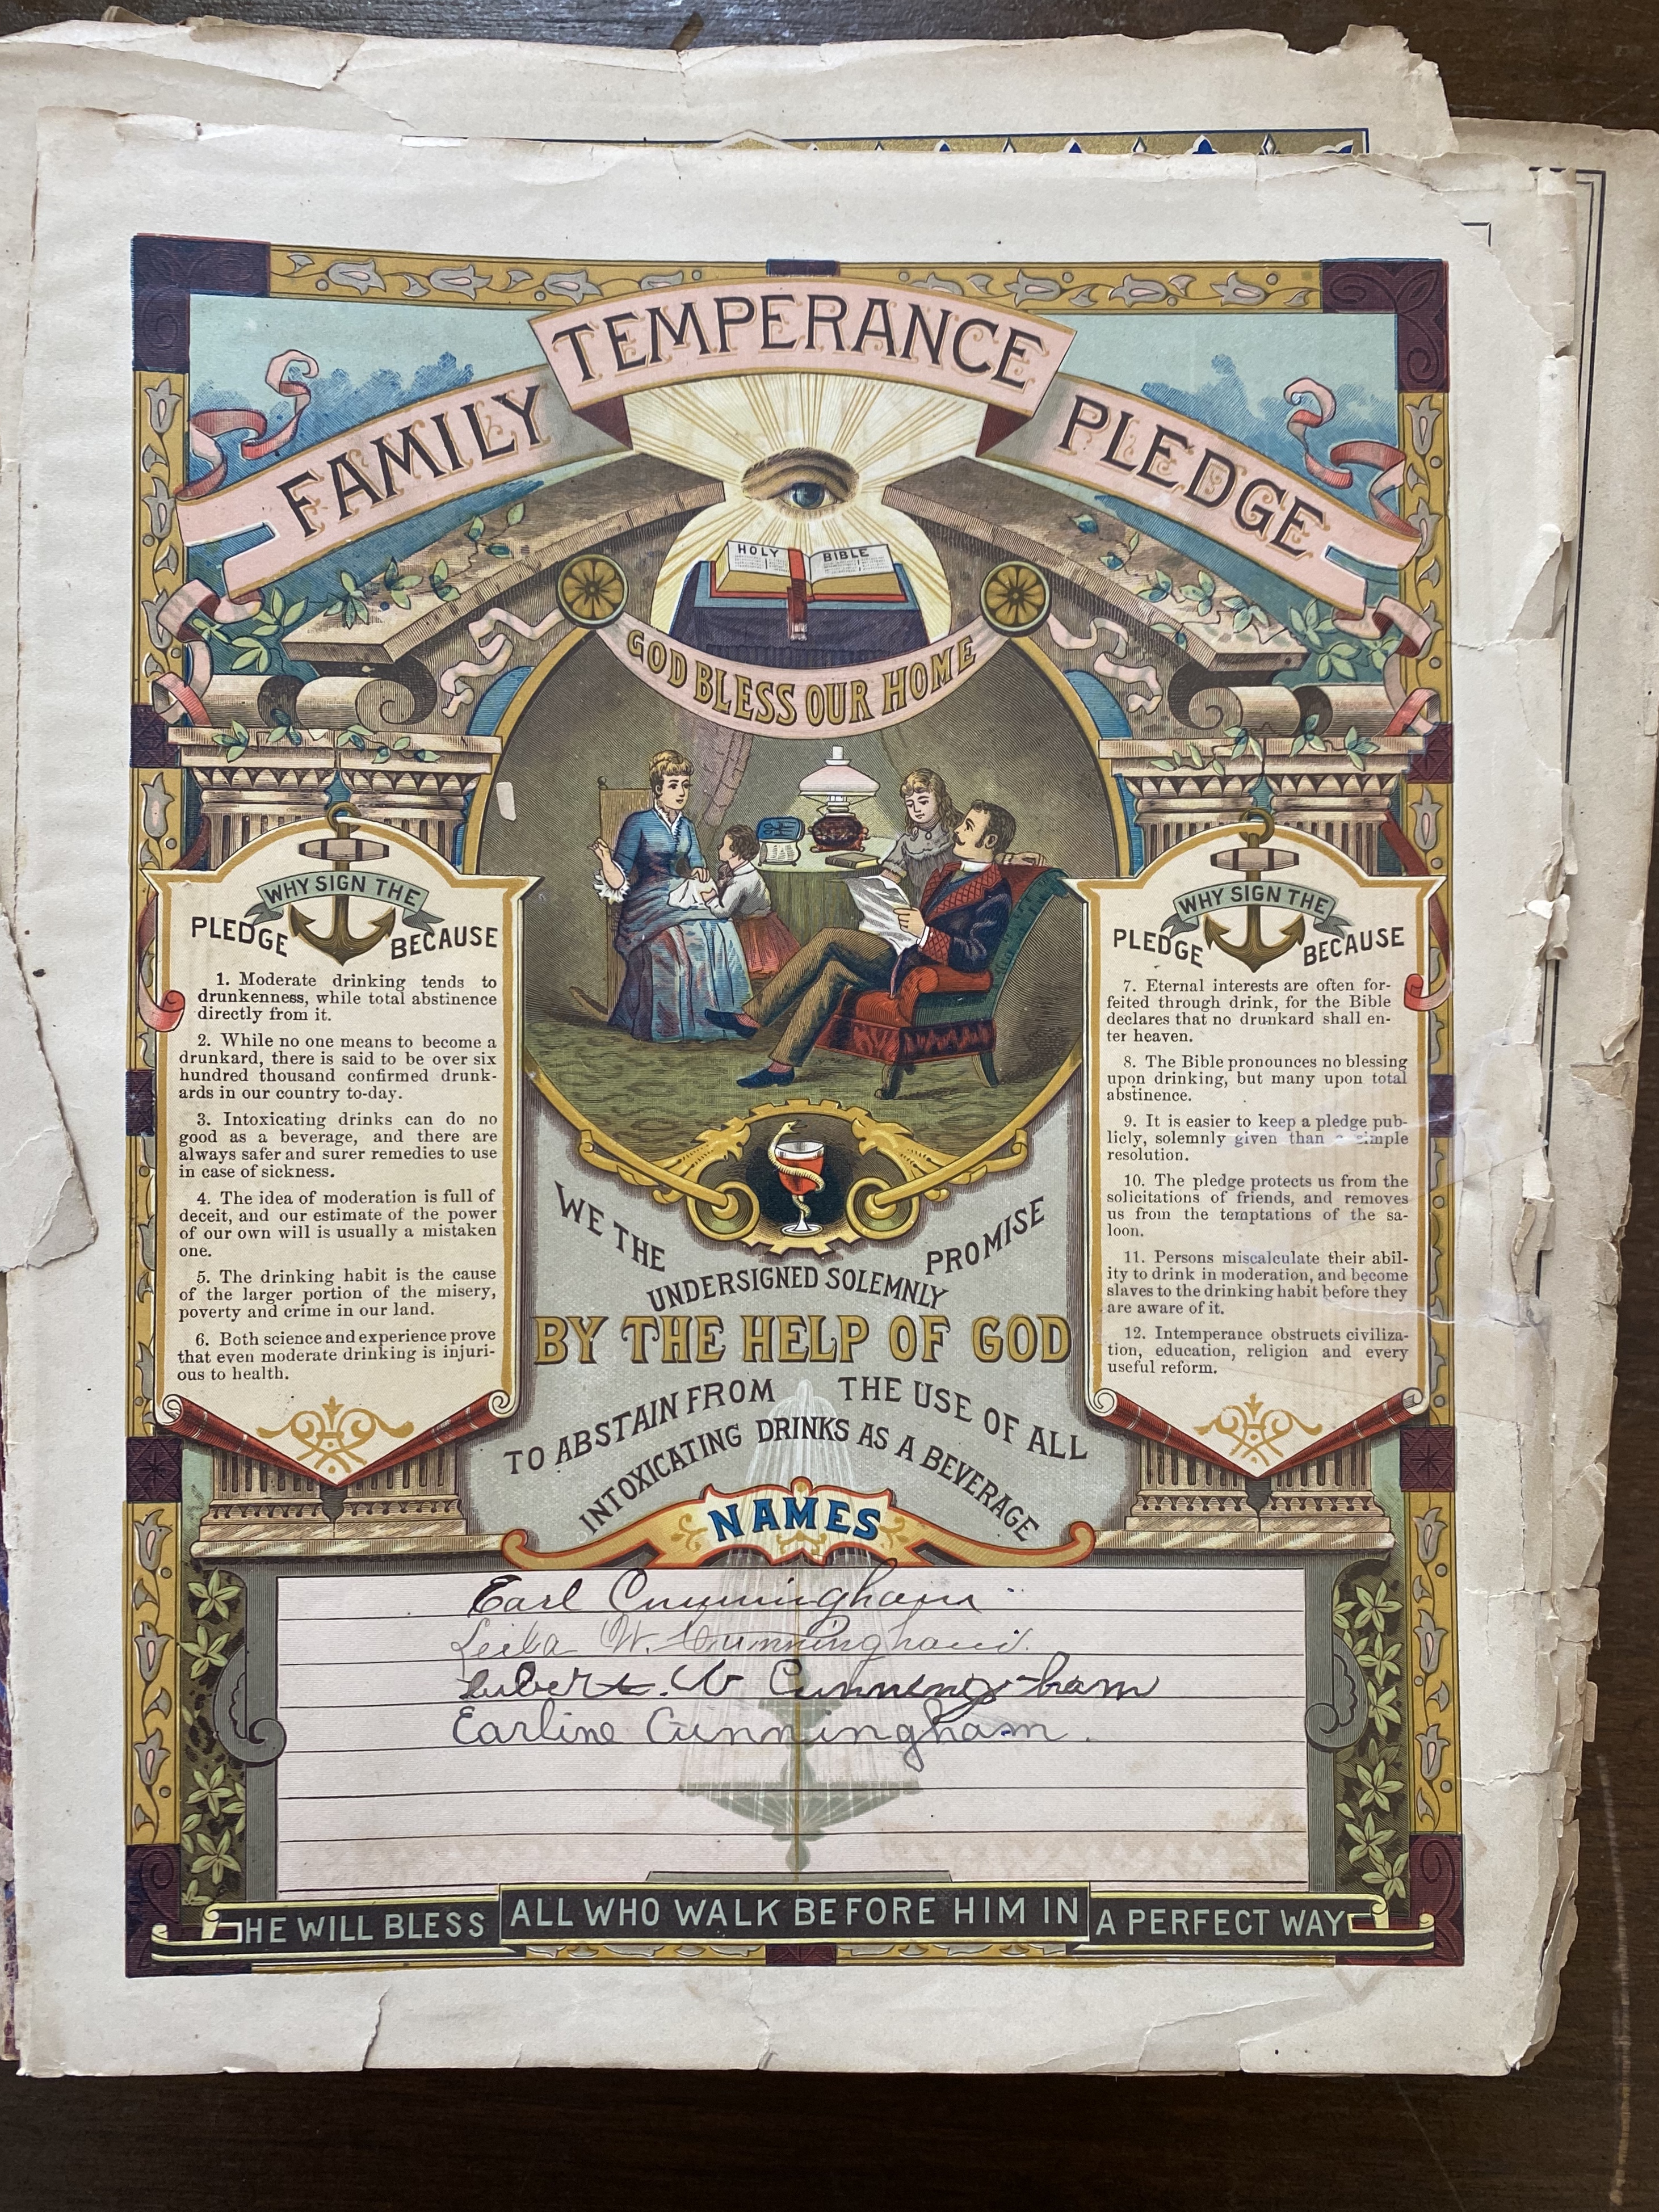 FAMILY TEMPERANCE PLEDGE
HOLY BIBLE
GOD BLESS OUR HOME
WHY SIGN THE
PLEDGE BECAUSE
1. Moderate drinking tends to
drunkenness, while total abstinence
directly from it.
2. While no one means to become a
drunkard, there is said to be over six
hundred thousand confirmed drunk-
ards in our country to-day.
3. Intoxicating drinks can do no
good as a beverage, and there are
always safer and surer remedies to use
in case of sickness.
4. The idea of moderation is full of
deceit, and our estimate of the power
of our own will is usually a mistaken
one.
5. The drinking habit is the cause
of the larger portion of the misery,
poverty and crime in our land.
6. Both science and experience prove
that even moderate drinking is injuri-
ous to health.
WHY SIGN THE
PLEDGE BECAUSE
7. Eternal interests are often for-
feited through drink, for the Bible
declares that no drunkard shall en-
ter heaven.
8. The Bible pronounces no blessing
upon drinking, but many upon total
abstinence.
9. It is easier to keep a pledge pub-
licly, solemnly given than a simple
resolution.
10. The pledge protects us from the
solicitations of friends, and removes
us from the temptations of the sa-
loon.
11. Persons miscalculate their abil-
ity to drink in moderation, and become
slaves to the drinking habit before they
are aware of it.
12. Intemperance obstructs civiliza-
tion, education, religion and every
useful reform.
WE THE
UNDERSIGNED SOLEMNLY
PROMISE
BY THE HELP OF GOD
TO ABSTAIN FROM THE USE OF ALL
INTOXICATING DRINKS AS A BEVERAGE
NAMES
Earl Cunningham
Leila W. Cunningham.
W Cunningham
Earline Cunningham.
HE WILL BLESS ALL WHO WALK BEFORE HIM IN A PERFECT WAY